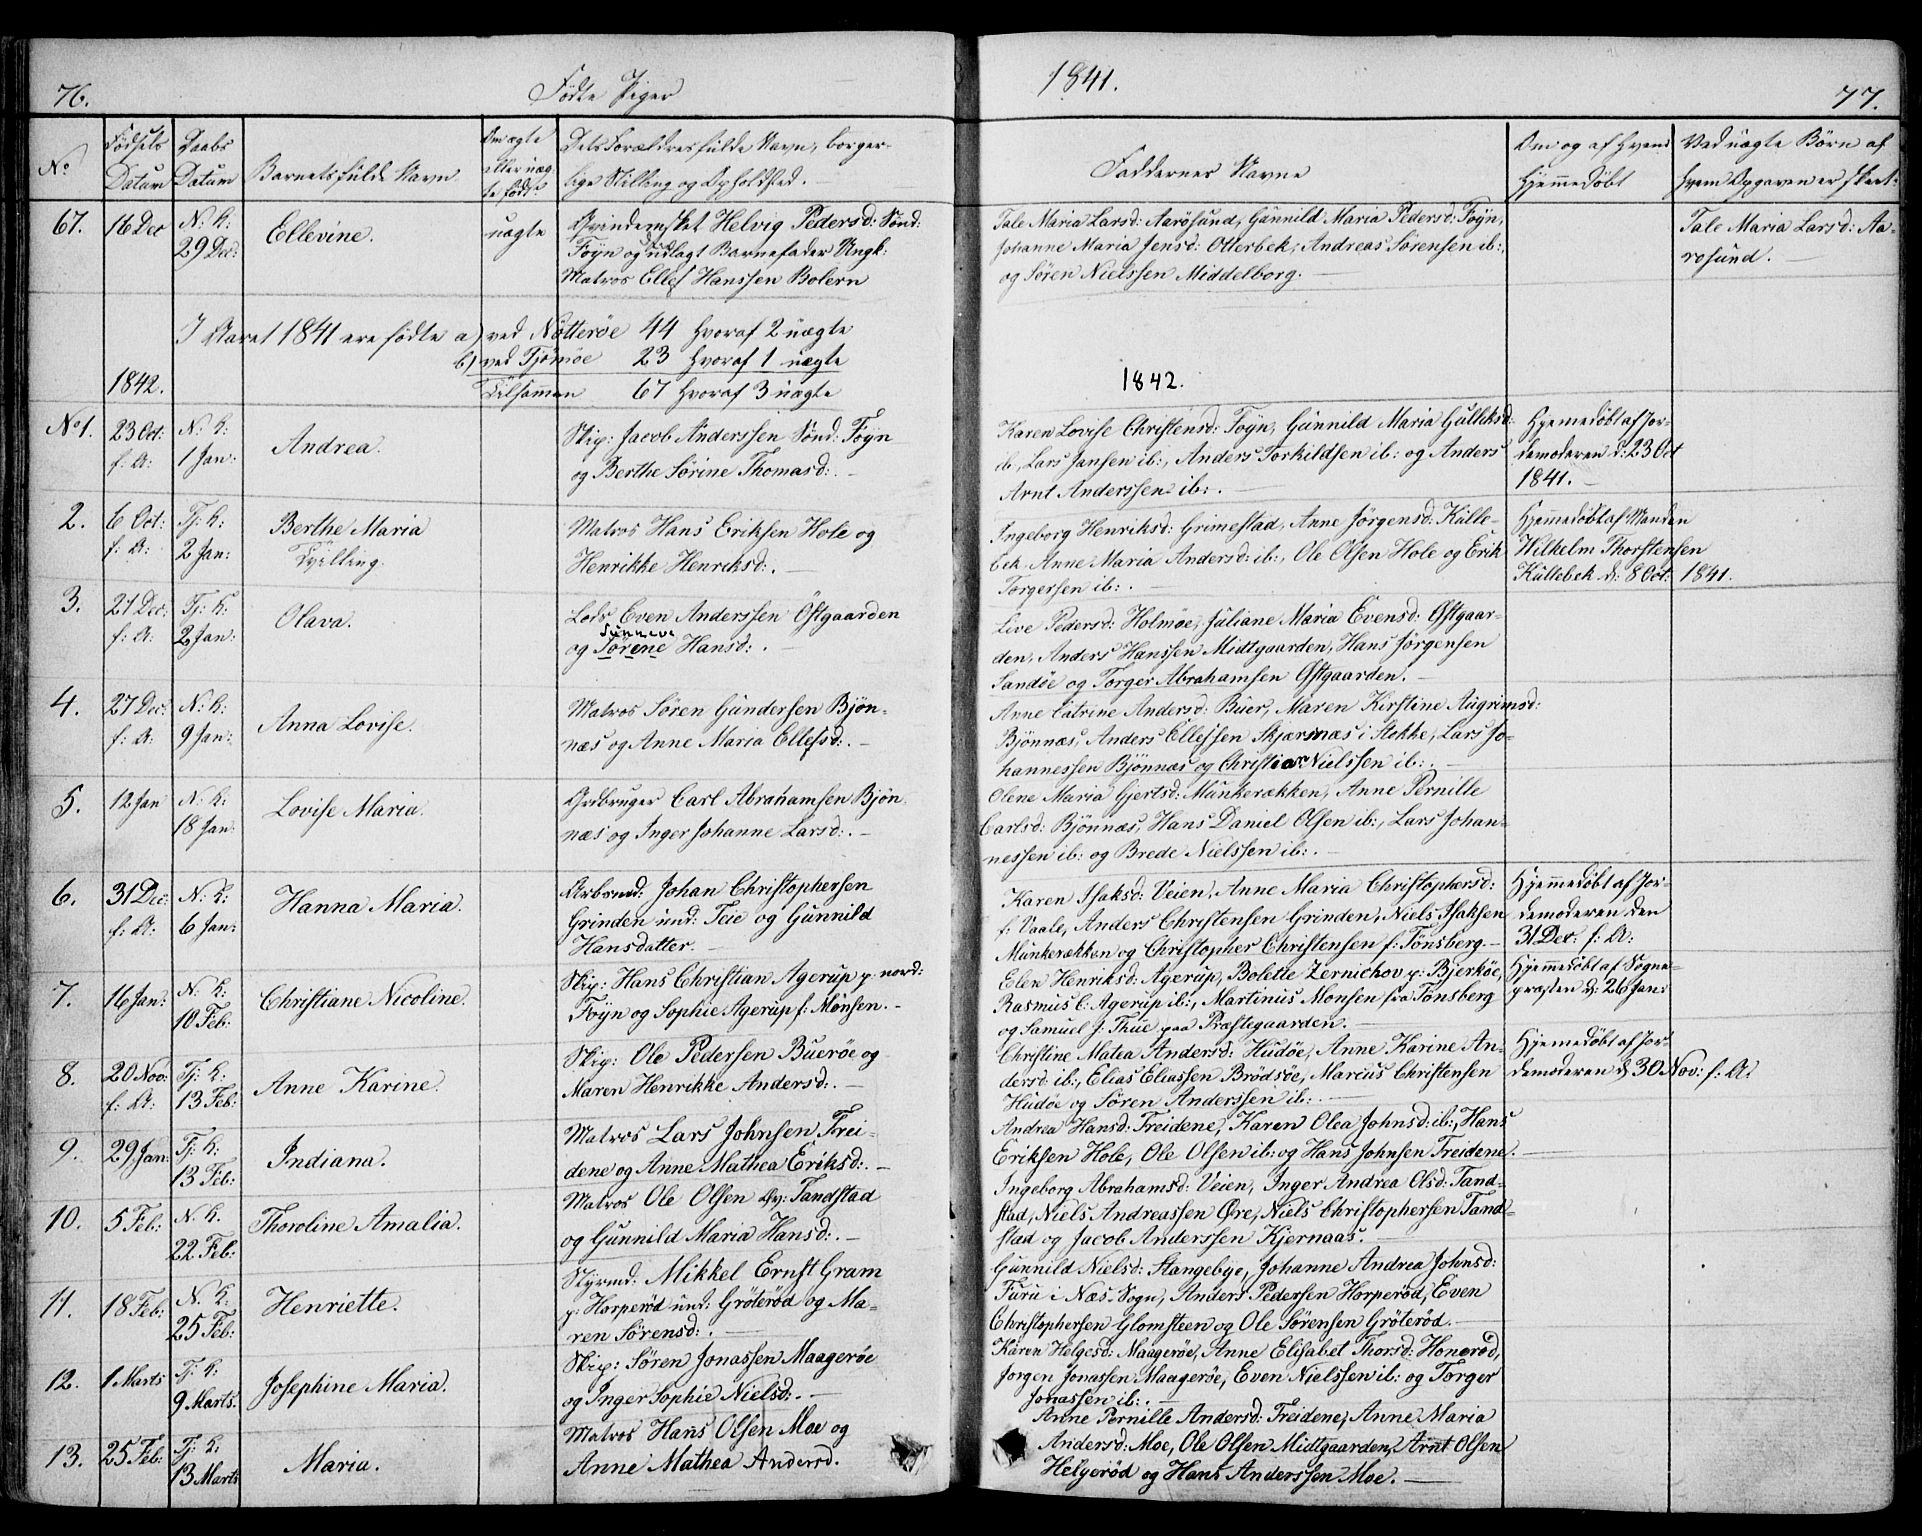 76.
Fødte Piger
No
Fødsels
Datum
Daabs
Datum
Barnets fulde Navn
Om ægte
eller uæg-
te født.
Dets Forældres fulde Navn, borger-
lige Stilling og Opholdsted.
67.
16 Dec
N: K:
29 Dec:
Ellevine.
uægte
Qvindemsket Helvig Pedersd: Sønd:
Føyn og udlagt Barnefader Ungk:
Matros Ellef Hanssen Bolern
I Aaret 1841 ere fødte a) ved Nøtterøe 44 hvoraf 2 uægte
b) ved Tjømøe 23 hvoraf 1 uægte
1842.
Tilsammen 67 hvoraf 3 uægte
No 1.
23 Oct:
f: A:
N: K:
1 Jan:
Andrea.
Skip: Jacob Anderssen Sønd: Føyn
og Berthe Sørine Thomasd: . -
2.
6 Oct:
f: A:
Tj: K:
2 Jan:
Berthe Maria
Tvilling.
Matros Hans Eriksen Hole og
Henrikke Henriksd: . -
3.
21 Dec:
f: A:
Tj: K:
2 Jan:
Olava.
Lods Even Anderssen Østgaarden
Sünneve
og Sørene Hansd: . -
4.
27 Dec:
f: A:
N: K:
9 Jan:
Anna Lovise.
Matros Søren Gundersen Bjøn-
næs og Anne Maria Ellefsd: . -
5.
12 Jan
N: K:
18 Jan:
Lovise Maria.
Grdbruger Carl Abrahamsen Bjøn-
næs og Inger Johanne Larsd: . -
6.
31 Dec
f: A:
N: K:
6 Jan:
Hanna Maria.
Arbsmd: Johan Christophersen
Grinden und: Teie og Gunnild
Hansdatter. -
7.
16 Jan:
N: K:
10 Feb:
Christiane Nicoline.
Skip: Hans Christian Agerup p. nord:
Føyn og Sophie Agerup f: Monsen. -
8.
20 Nov:
f: A:
Tj: K:
13 Feb:
Anne Karine.
Skip: Ole Pedersen Buerøe og
Maren Henrikke Andersd: . -
9.
29 Jan:
Tj: K:
13 Feb:
Indiana.
Matros Lars Johnsen Trei-
dene og Anne Mathea Eriksd: . -
10.
5 Feb:
N. K.
22 Feb:
Thoroline Amalia.
Matros Ole Olsen Øv: Tandstad
og Gunnild Maria Hansd: . -
11.
18 Feb:
N. K.
25 Feb:
Henriette.
Styrmd: Mikkel Ernst Gram
p: Horperød und: Grøterød og Ma-
ren Sørensd: . -
12.
1 Marts
Tj: K:
9 Marts.
Josephine Maria.
Skip: Søren Jonassen Maagerøe
og Inger Sophie Nielsd: . -
13.
25 Feb:
Tj: K:
13 Marts
Maria.
Matros Hans Olsen Moe og
Anne Mathea Andersd.
1841.
77.
Faddernes Navne
Om og af hvem
hjemmedøbt
Ved uægte Børn af
hvem Opgaven er skeet.
Tale Maria Larsd: Aarøsund, Gunnild Maria Pedersd: Føyn,
Johanne Maria Jensd: Otterbek, Andreas Sørensen ib:,
og Søren Nielssen Middelborg. -
Tale Maria Larsd: Aa-
røsund. -
1842.
Karen Lovise Christensd: Føyn, Gunnild Maria Gulliksd:
ib, Lars Jansen ib:, Anders Torkildsen ib: og Anders
Arnt Anderssen ib: . -
Hjemmedøbt af Jor-
demoderen d: 23 Oct
1841. -
Ingeborg Henriksd: Grimestad, Anne Jørgensd: Kulle-
bek, Anne Maria Andersd: ib:, Ole Olsen Hole og Erik
Torgersen ib: . -
Hjemmedøbt af Manden
Wilhelm Thorstensen
Kullebek d: 8 Oct: 1841.
Live Pedersd: Holmøe, Juliane Maria Evensd: Østgaar-
den, Anders Hanssen Midtgaarden, Hans Jørgensen
Sandøe og Torger Abrahamsen Østgaarden. -
Anne Catrine Andersd: Buer, Maren Kirstine Augrimsd:
Bjønnæs, Anders Ellefsen Skjærsnæs i Stokke, Lars Jo-
hannessen Bjønnæs og Christian Nielssen ib: . -
Olene Maria Gjertsd: Munkerækken, Anne Pernille
Carlsd: Bjønnæs, Hans Daniel Olsen ib:, Lars Johan-
nessen ib: og Brede Nielssen ib: . -
Karen Isaksd: Veien, Anne Maria Christophersd:
f: Vaale, Anders Christensen Grinden, Niels Isaksen
Munkerækken og Christopher Christensen f: Tønsberg. -
Hjemmedøbt af Jor-
demoderen den
31 Dec: f: A:
Elen Henriksd: Agerup, Bolette Zernichov p: Bjerkøe,
Rasmus C. Agerup ib:, Martinus Monsen fra Tønsberg
og Samuel J: Thue paa Præstegaarden. -
Hjemmedøbt af Sogne-
præsten d: 26 Jan:
Christine Matea Andersd: Hudøe, Anne Karine An-
dersd: ib:, Elias Eliassen Brødsøe, Marcus Christensen
Hudøe og Søren Anderssen ib: . -
Hjemmedøbt af Jor-
demoderen d 30 Nov: f: A:
Andrea Hansd: Treidene, Karen Olea Johnsd: ib:, Hans
Eriksen Hole, Ole Olsen ib: og Hans Johnsen Treidene. -
Ingeborg Abrahamsd: Veien, Inger Andrea Olsd: Tand-
stad, Niels Andreassen Øre, Niels Christophersen Tand-
stad og Jacob Anderssen Kjernaas. -
Gunnild Nielsd: Stangebye, Johanne Andrea Johnsd:
Furu i Næs Sogn, Anders Pedersen Horperød, Even
Christophersen Glomsteen og Ole Sørensen Grøterød. -
Karen Helgesd: Maagerøe, Anne Elisabet Thorsd: Honerød,
Jørgen Jonassen Maagerøe, Even Nielssen ib: og Torger
Jonassen ib: . -
Anne Pernille Andersd: Treidene, Anne Maria
Andersd: Moe, Ole Olsen Midtgaarden, Arnt Olsen
Helgerød og Hans Anderssen Moe. -